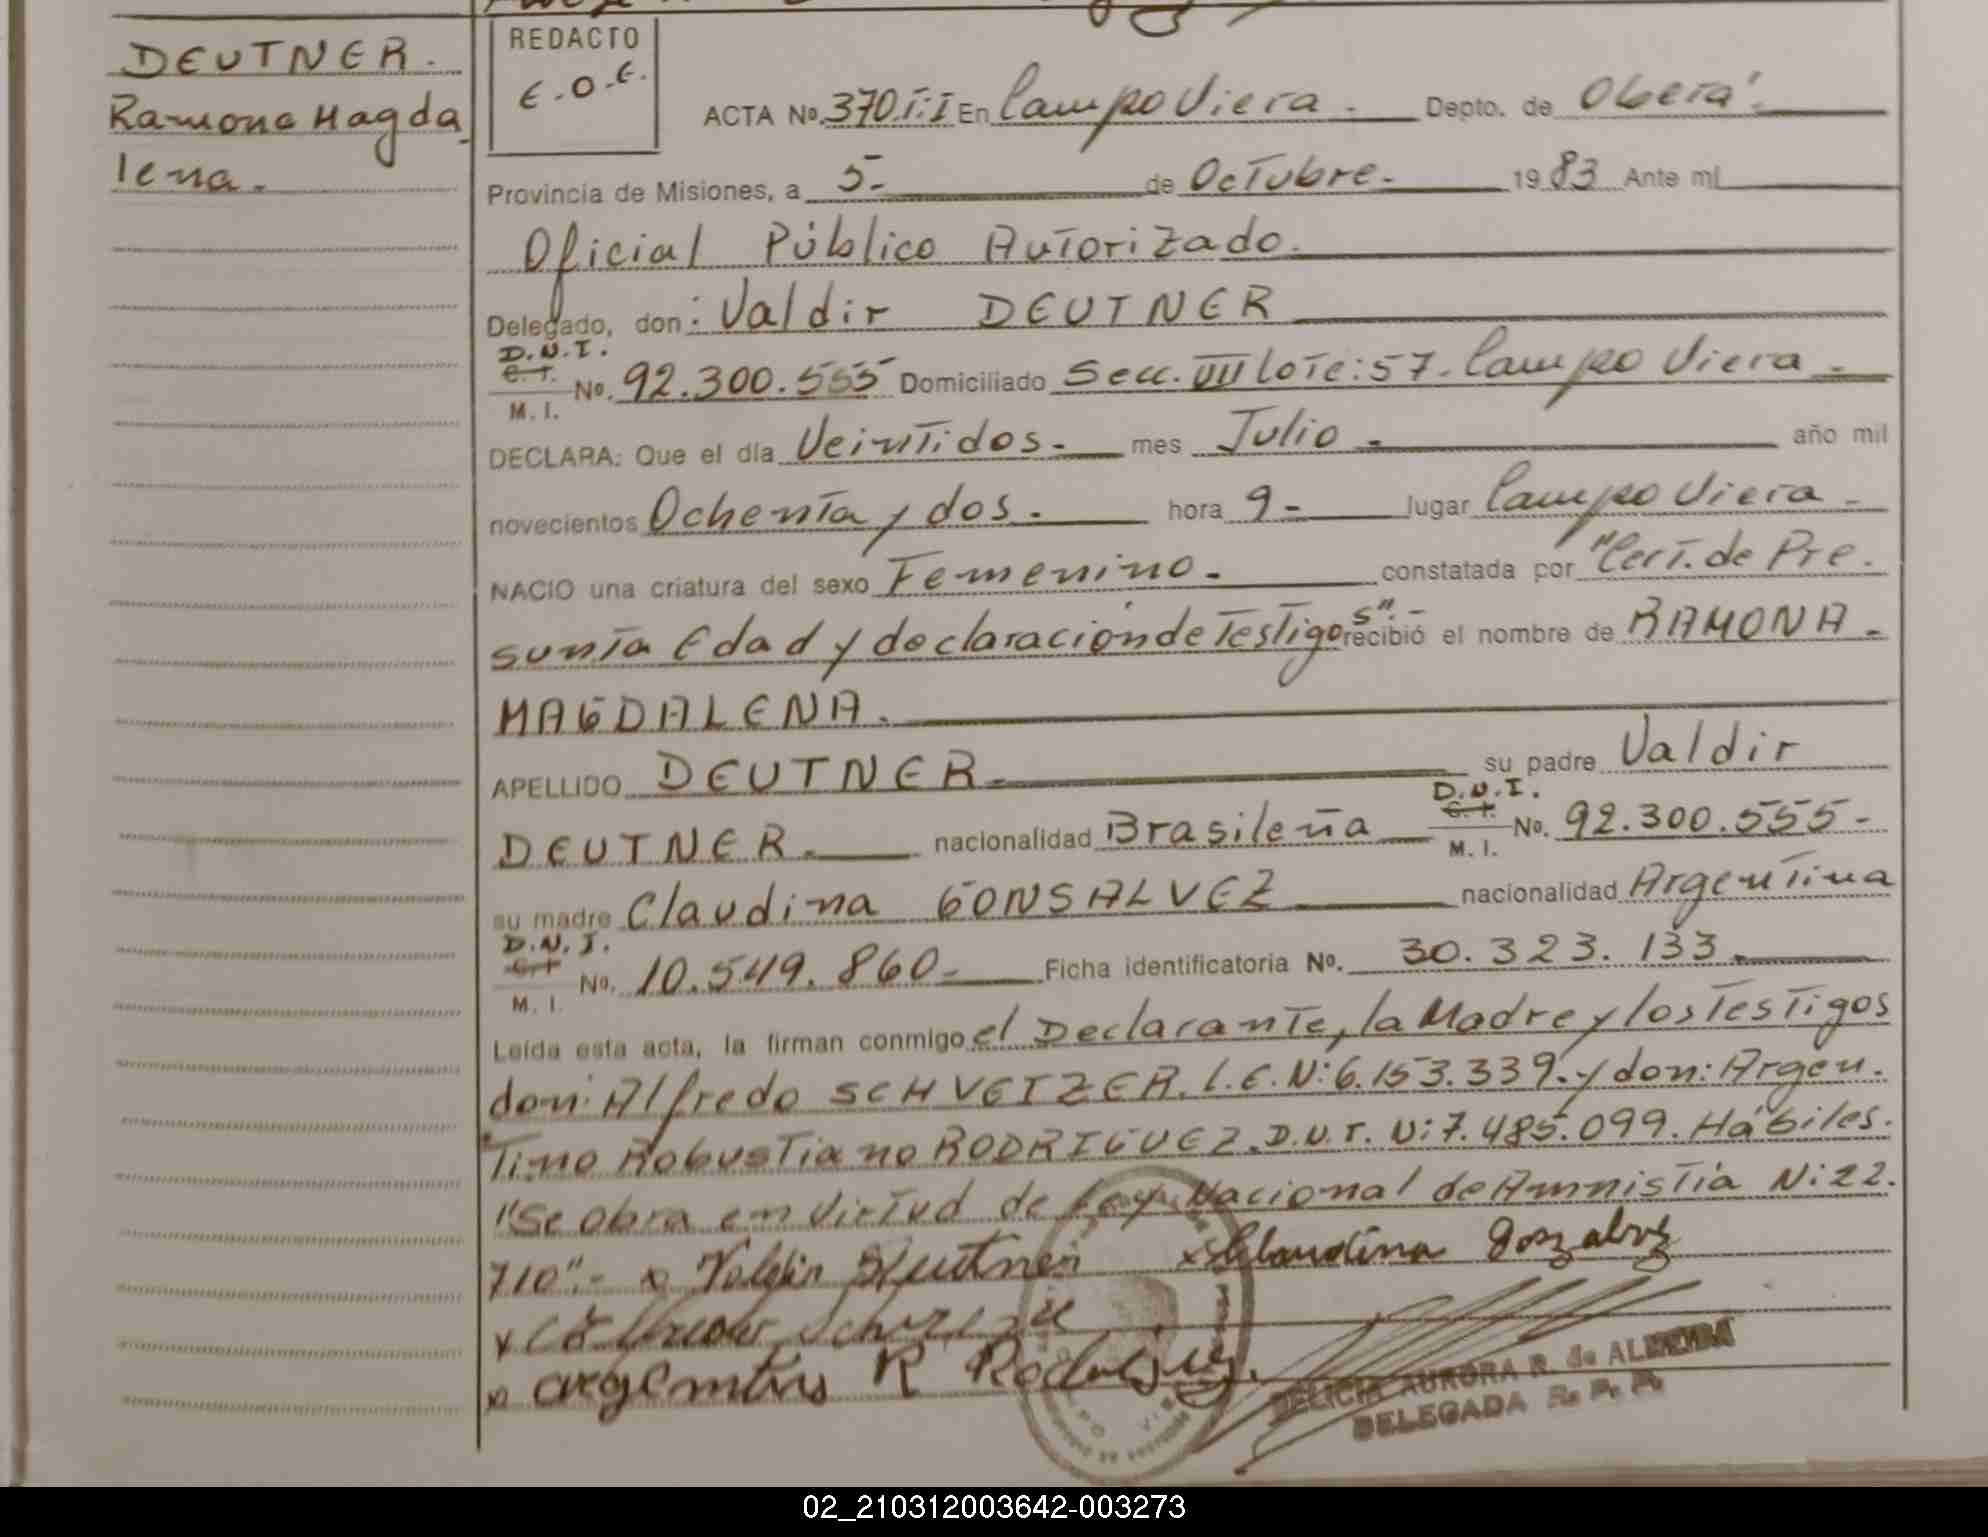 DEUTNER.
Ramona Magda
lena.
REDACTO
E.O.E.
ACTA No. 370.T:I En Campo Viera. Depto. de Oberá.
Provincia de Misiones, a 5- de Octubre. 19 83 Ante mí
Oficial Público Autorizado.
Delegado, don: Valdir DEUTNER
D.N.I.
C.I.
M.I. No. 92.300.555 Domiciliado Secc. VIII lote: 57. Campo Viera
DECLARA: Que el día Veintidos. mes Julio año mil
novecientos Ochenta y dos. hora 9- lugar Campo Viera
NACIO una criatura del sexo Femenino. constatada por "Cert. de Pre.
sunta Edad y declaración de Testigos".- recibió el nombre de RAMONA.
MAGDALENA.
APELLIDO DEUTNER. su padre Valdir
DEUTNER. nacionalidad Brasileña D.N.I. C.I. M.I. No. 92.300.555-
su madre Claudina GONSALVEZ nacionalidad Argentina
D.N.I.
C.I.
M.I. No. 10.549.860- Ficha identificatoria No. 30.323.133
Leída esta acta, la firman conmigo el Declarante, la Madre y los Testigos
don: Alfredo SCHVEIZER. L.E.N: 6.153.339. y don: Argen.
Tino Robustiano RODRIGUEZ. D.N.I. N: 7.485.099. Hábiles.
"Se obra en Virtud de Ley Nacional de Amnistía N: 22.
710".- x Valdir Deutner x Claudina Gonzalvez
x
x Argentino R Rodriguez.
DELICIA AURORA R. de ALMEIDA
DELEGADA R. P. P.
02_210312003642-003273